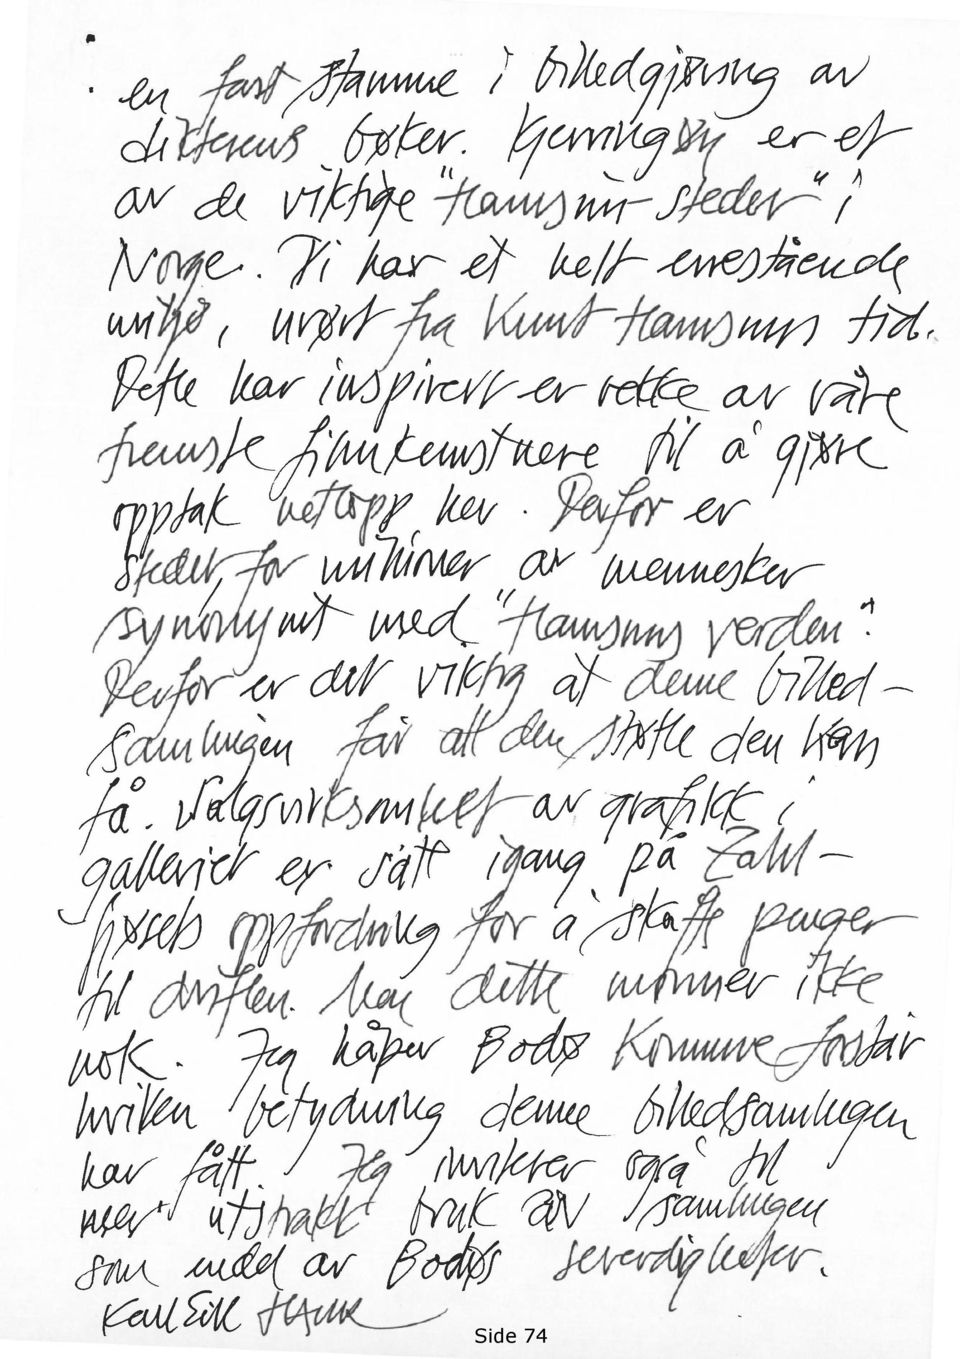 en fast stamme i billedgjøring av
dikterens bøker. Kjerringøy er et
av de viktige "Hamsun-steder" i
Norge. Vi har et helt enestående
miljø, urørt fra Knut Hamsuns tid.
Dette har inspirert en rekke av våre
fremste filmkunstnere til å gjøre
opptak nettopp her. Derfor er
stedet, for millioner av mennesker
synonymt med "Hamsuns verden".
Derfor er det viktig at denne billed-
samlingen får all den støtte den kan
få. Salgsvirksomhet av grafikk i
galleriet er satt igang på Zahl-
fjøsets oppfordring for å skaffe penger
til driften. Men dette monner ikke
nok. Jeg håper Bodø Kommune forstår
hvilken betydning denne billedsamlingen
har fått. Jeg inviterer også til
mer utstrakt bruk av samlingen
som ledd av Bodøs severdigheter.
Karl Erik Harr
Side 74